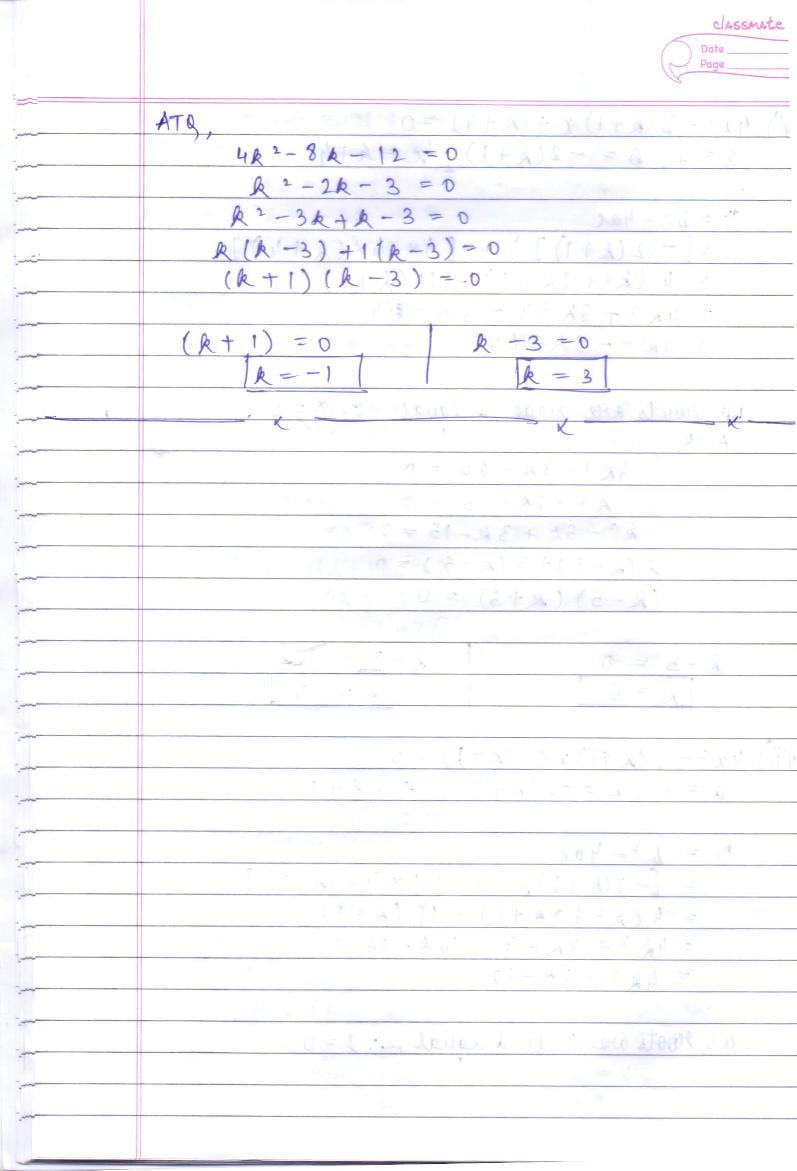 classmate
Date
Page
ATQ,
4k² - 8k - 12 = 0
k² - 2k - 3 = 0
k² - 3k + k - 3 = 0
k(k - 3) + 1(k - 3) = 0
(k + 1) (k - 3) = 0
(k + 1) = 0 | k - 3 = 0
k = -1 | k = 3
x x x